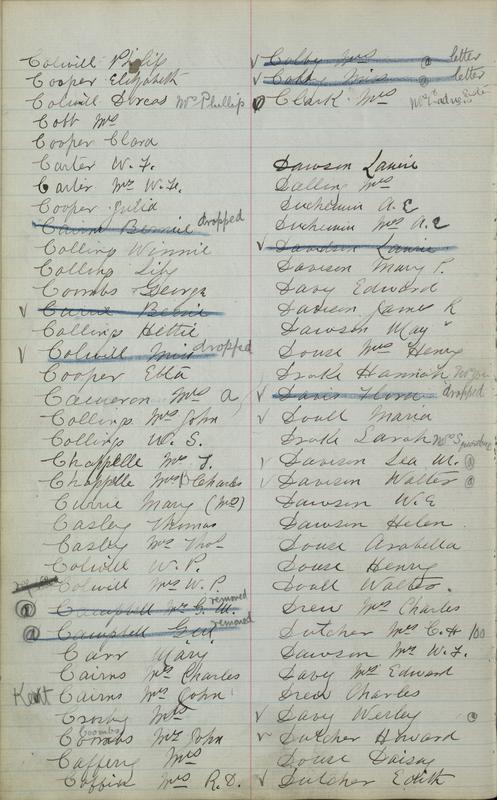 Colwill Philip
Cooper Elizabeth
Colwill Dorcas Mrs Phillip
Cobb Mrs
Cooper Clara
Carter W. F.
Carter Mrs W. F.
Cooper Julia
Cairns Bennie dropped
Colling Winnie
Colling Lily
Coombs George
Currie Bessie
Collings Hettie
Colwill Miss dropped
Cooper Etta
Cameron Mrs A
Collings Mrs John
Collings W. S.
Chappelle Mrs J.
Chappelle Mrs Charles
Currie Mary (Mrs)
Casley Thomas
Casley Mrs Thos
Colwill W. P.
Colwill Mrs W. P.
Campbell Mrs G. W. removed
Campbell removed
Carr Mary
Cairns Mrs Charles
Kent Cairns Mrs John
Crosby Mrs
Coombs
Coombs Mrs John
Caffery Mrs
Coffin Mrs R. D.
Colby Mrs letter
Colby Miss letter
Clark Mrs
Dawson Lanie
Dalling Mrs
Duchemin A. E
Duchemin Mrs A. E
Davidson Lanie
Davison Mary P.
Davy Edward
Davison James R
Dawson May
Douse Mrs Henry
Drake Hannah
Davis Flora dropped
Doull Maria
Drake Sarah
Davison Lea M.
Davison Walter
Dawson W. E
Dawson Helen
Douse Arabella
Douse Henry
Doull Walter
Drew Mrs Charles
Dutcher Mrs C. H 100
Dawson Mrs W. F.
Davy Mrs Edward
Drew Charles
Davy Wesley
Dutcher Howard
Douse Daisy
Dutcher Edith